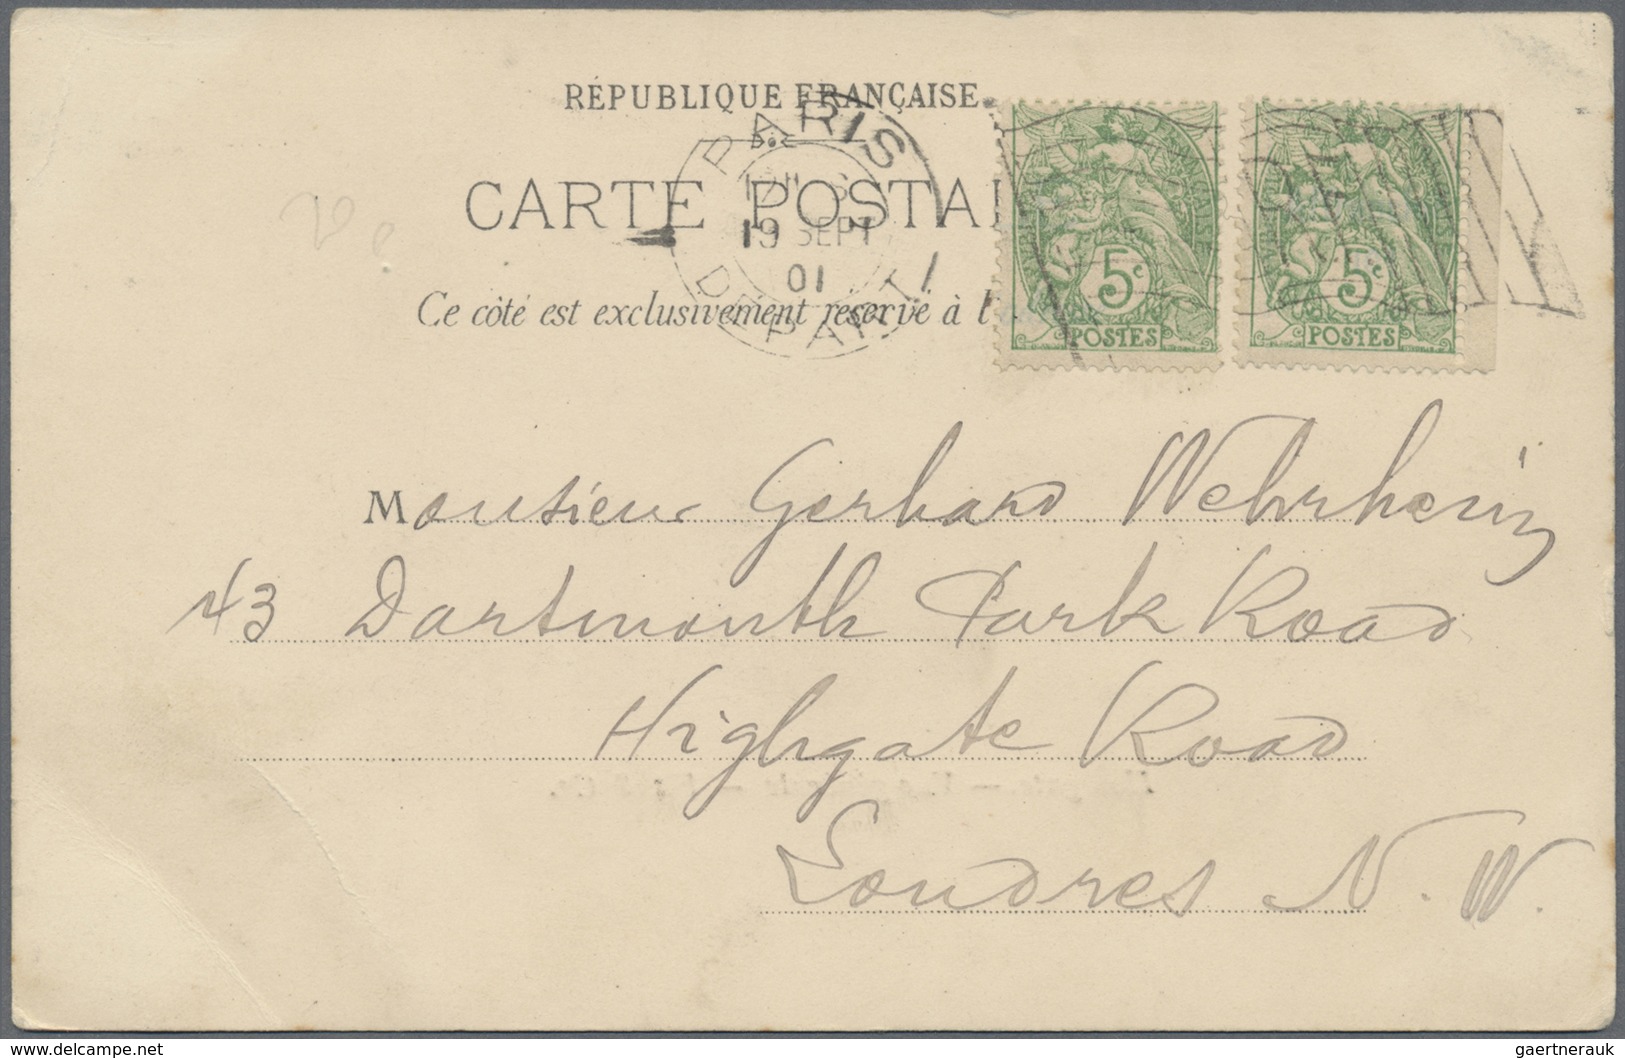 RÉPUBLIQUE FRANÇAISE
CARTE POSTAL
Ce côté est exclusivement réservé à l'
PARIS
19 SEPT
01
DEPART
5c
POSTES
5c
POSTES
Monsieur Gerhard
43 Dartmouth Park Road
Highgate Road
Londres N. W.
www.delcampe.net
gaertnerauk